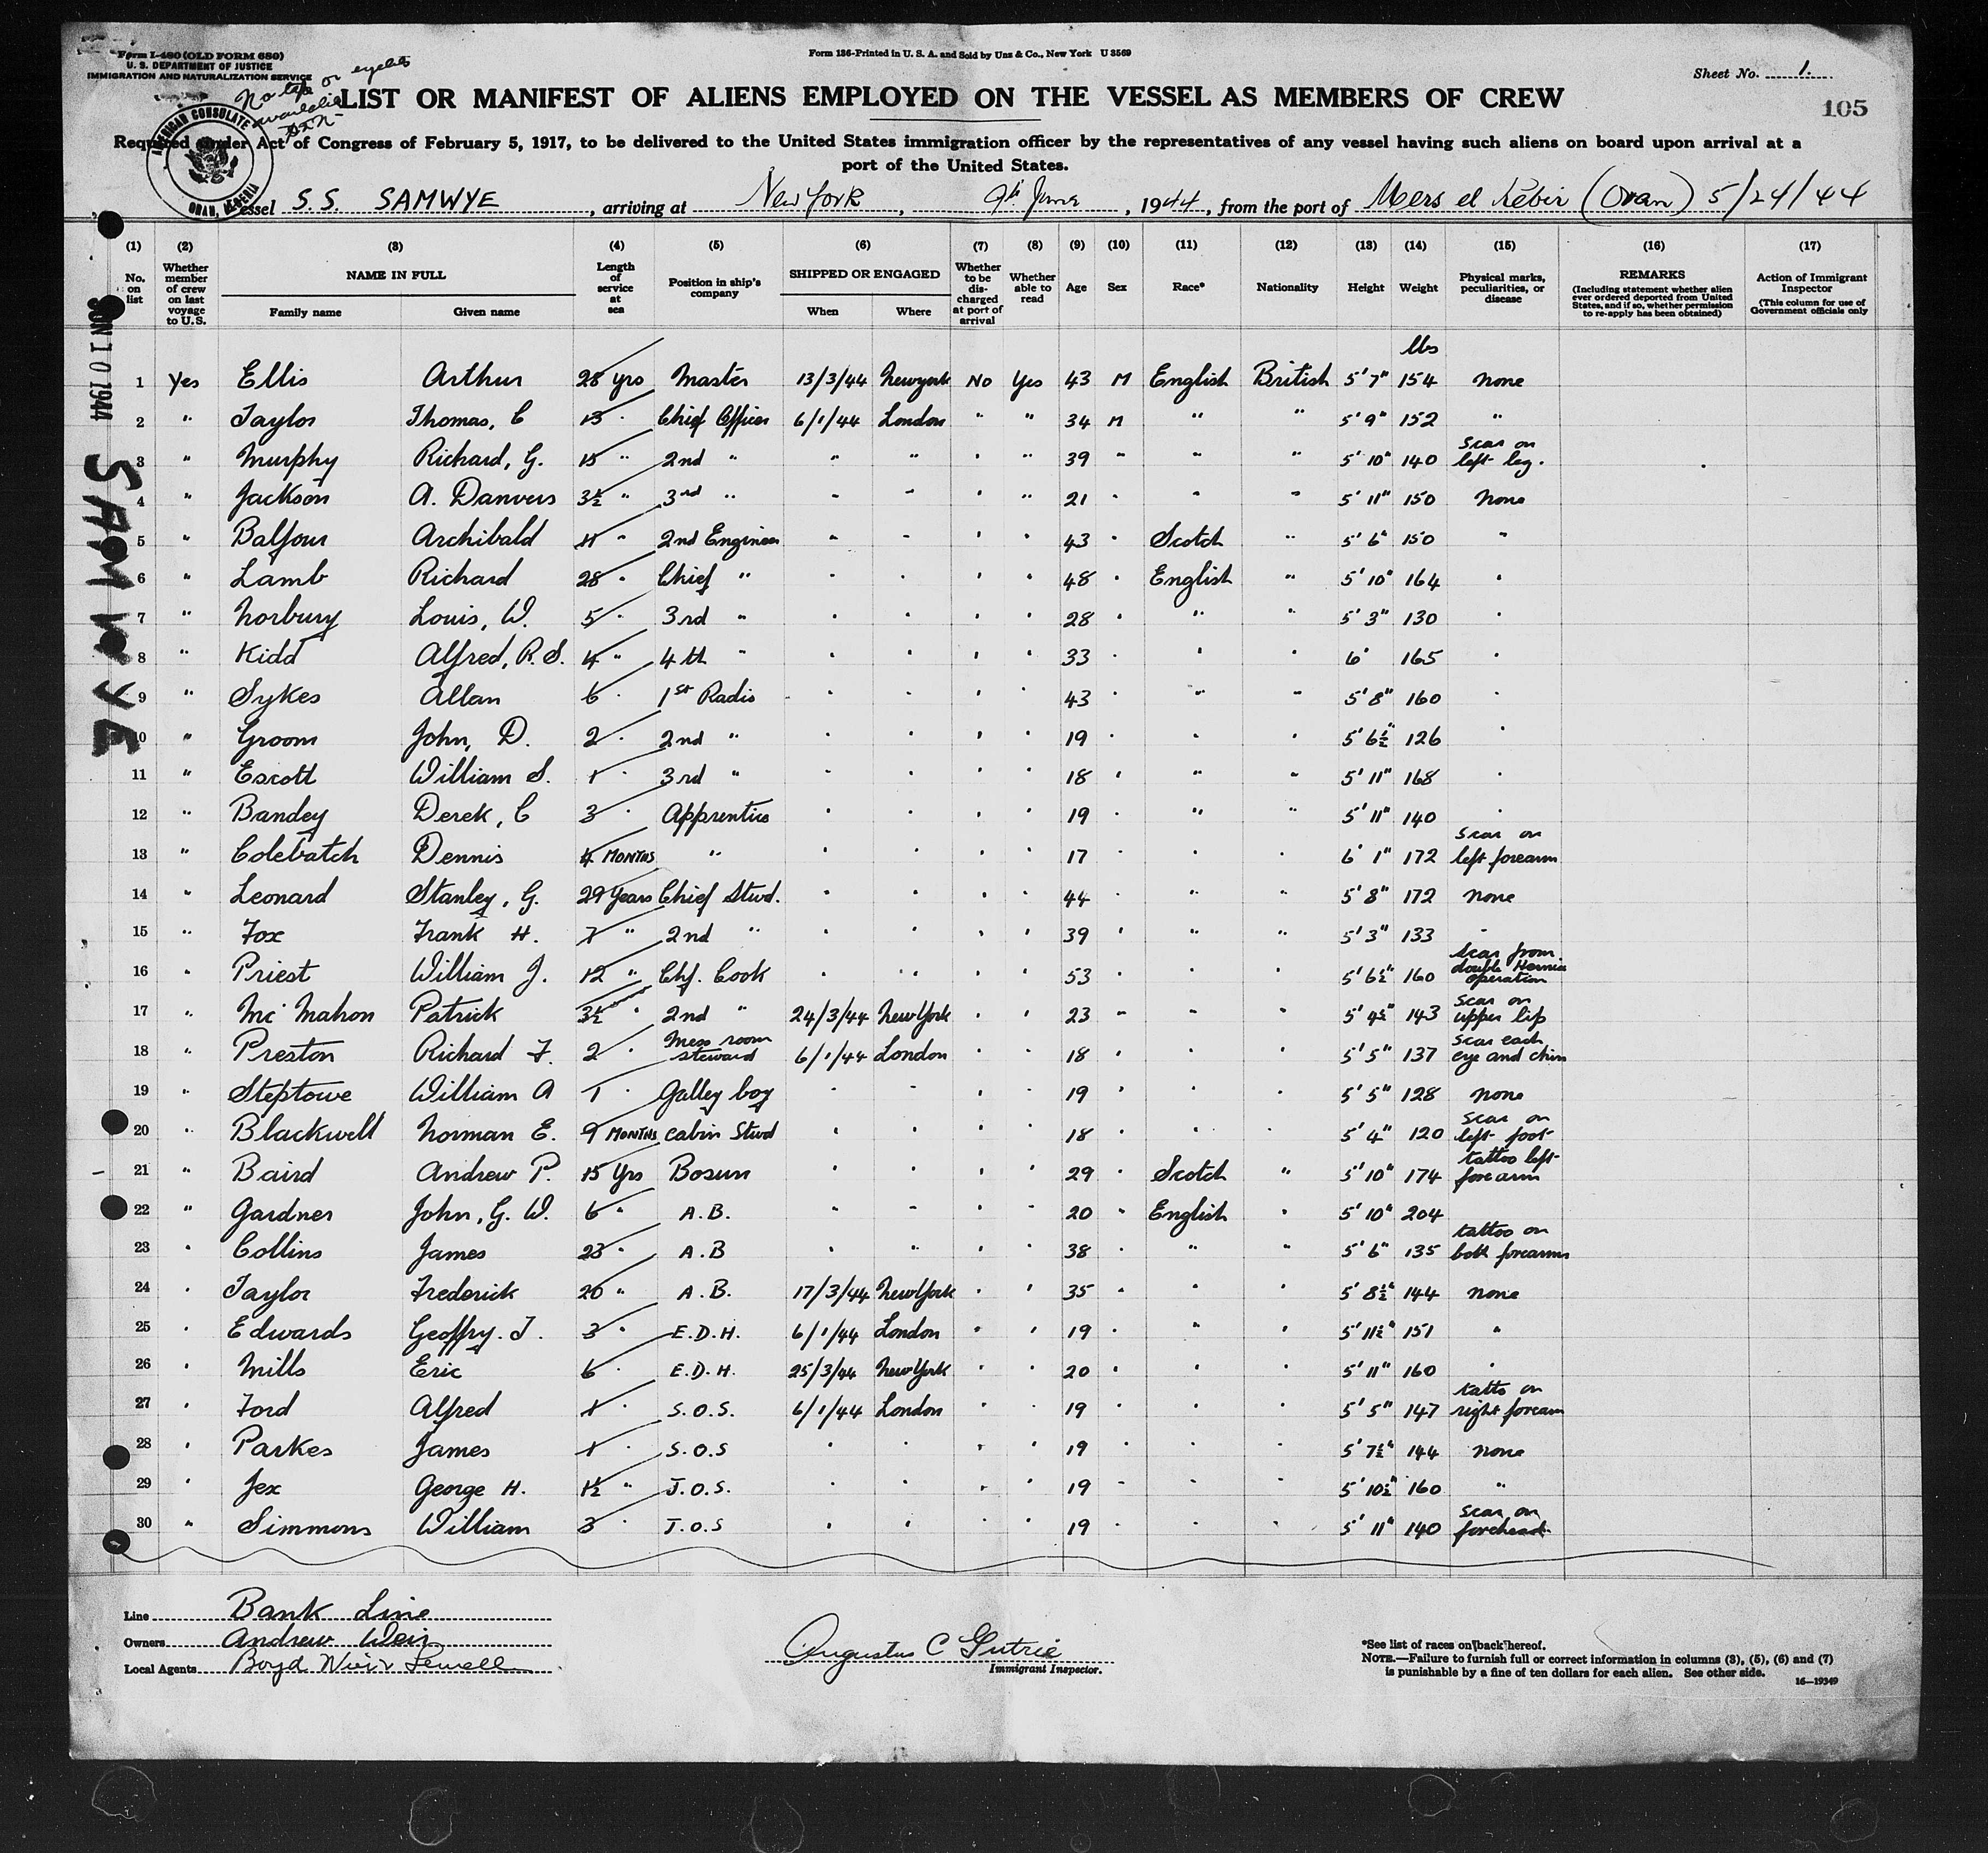 Form I-480 (OLD FORM 680)
U. S. DEPARTMENT OF JUSTICE
IMMIGRATION AND NATURALIZATION SERVICE
No tape or eyelets
available
Form 136-Printed in U. S. A. and Sold by Unz & Co., New York U 3569
Sheet No. 1.
105
AMERICAN CONSULATE
ORAN, ALGERIA
LIST OR MANIFEST OF ALIENS EMPLOYED ON THE VESSEL AS MEMBERS OF CREW
Required under Act of Congress of February 5, 1917, to be delivered to the United States immigration officer by the representatives of any vessel having such aliens on board upon arrival at a
port of the United States.
Vessel S.S. SAMWYE, arriving at New York, 9th June, 1944, from the port of Mers el Kebir (Oran) 5/24/44
JUN 10 1944
SAMWYE
(1) No. on list (2) Whether member of crew on last voyage to U.S. (3) NAME IN FULL Family name Given name (4) Length of service at sea (5) Position in ship's company (6) SHIPPED OR ENGAGED When Where (7) Whether to be discharged at port of arrival (8) Whether able to read (9) Age (10) Sex (11) Race* (12) Nationality (13) Height (14) Weight (15) Physical marks, peculiarities, or disease (16) REMARKS (Including statement whether alien ever ordered deported from United States, and if so, whether permission to re-apply has been obtained) (17) Action of Immigrant Inspector (This column for use of Government officials only
lbs
1 Yes Ellis Arthur 28 yrs Master 13/3/44 New york No Yes 43 M English British 5' 7" 154 none
2 " Taylor Thomas, C 13 " Chief Officer 6/1/44 London " " 34 M " " 5' 9" 152 "
3 " Murphy Richard, G. 15 " 2nd " " " " " 39 " " " 5' 10" 140 Scar on left leg.
4 " Jackson A. Danvers 3½ " 3rd " " " " " 21 " " " 5' 11" 150 None
5 " Balfour Archibald " 2nd Engineer " " " " 43 " Scotch " 5' 6" 150 "
6 " Lamb Richard 28 " Chief " " " " " 48 " English " 5' 10" 164 "
7 " Norbury Louis, W. 5 " 3rd " " " " " 28 " " " 5' 3" 130 "
8 " Kidd Alfred, R. S. 4 " 4th " " " " " 33 " " " 6' 165 "
9 " Sykes Allan 6 " 1st Radio " " " " 43 " " " 5' 8" 160 "
10 " Groom John, D. 2 " 2nd " " " " " 19 " " " 5' 6½" 126 "
11 " Escott William S. 1 " 3rd " " " " " 18 " " " 5' 11" 168 "
12 " Bandey Derek, C 3 " Apprentice " " " " 19 " " " 5' 11" 140 "
13 " Colebatch Dennis 4 MONTHS " " " " " 17 " " " 6' 1" 172 Scar on left forearm
14 " Leonard Stanley, G. 29 Years Chief Stwd. " " " " 44 " " " 5' 8" 172 none
15 " Fox Frank H. 7 " 2nd " " " " " 39 " " " 5' 3" 133 "
16 " Priest William J. 12 " Chf. Cook " " " " 53 " " " 5' 6½" 160 Scar from double Hernia operation
17 " Mc Mahon Patrick 3½ " 2nd " 24/3/44 New York " " 23 " " " 5' 4½" 143 Scar on upper lip
18 " Preston Richard F. 2 " Mess room steward 6/1/44 London " " 18 " " " 5' 5" 137 Scar each eye and chin
19 " Steptowe William A 1 " Galley boy " " " " 19 " " " 5' 5" 128 none
20 " Blackwell Norman E. 9 MONTHS Cabin Stwd " " " " 18 " " " 5' 4" 120 Scar on left foot
21 " Baird Andrew P. 15 Yrs Bosun " " " " 29 " Scotch " 5' 10" 174 tattoo left forearm
22 " Gardner John, G. W. 6 " A.B. " " " " 20 " English " 5' 10" 204
23 " Collins James 23 " A.B " " " " 38 " " " 5' 6" 135 tattoo on both forearms
24 " Taylor Frederick 20 " A.B. 17/3/44 New York " " 35 " " " 5' 8½" 144 none
25 " Edwards Geoffry. J. 3 " E.D.H. 6/1/44 London " " 19 " " " 5' 11½" 151 "
26 " Mills Eric 6 " E.D.H. 25/3/44 New York " " 20 " " " 5' 11" 160 "
27 " Ford Alfred 1 " S.O.S. 6/1/44 London " " 19 " " " 5' 5" 147 tatto on right forearm
28 " Parkes James 1 " S.O.S " " " " 19 " " " 5' 7½" 144 none
29 " Jex George H. 1½ " J.O.S. " " " " 19 " " " 5' 10½" 160 "
30 " Simmons William 3 " J.O.S " " " " 19 " " " 5' 11" 140 Scar on forehead
Line Bank Line
Owners Andrew Weir
Local Agents Boyd Weir Sewell
Augustus C Gutrie
Immigrant Inspector.
*See list of races on back hereof.
NOTE.—Failure to furnish full or correct information in columns (3), (5), (6) and (7)
is punishable by a fine of ten dollars for each alien. See other side.
16—19349